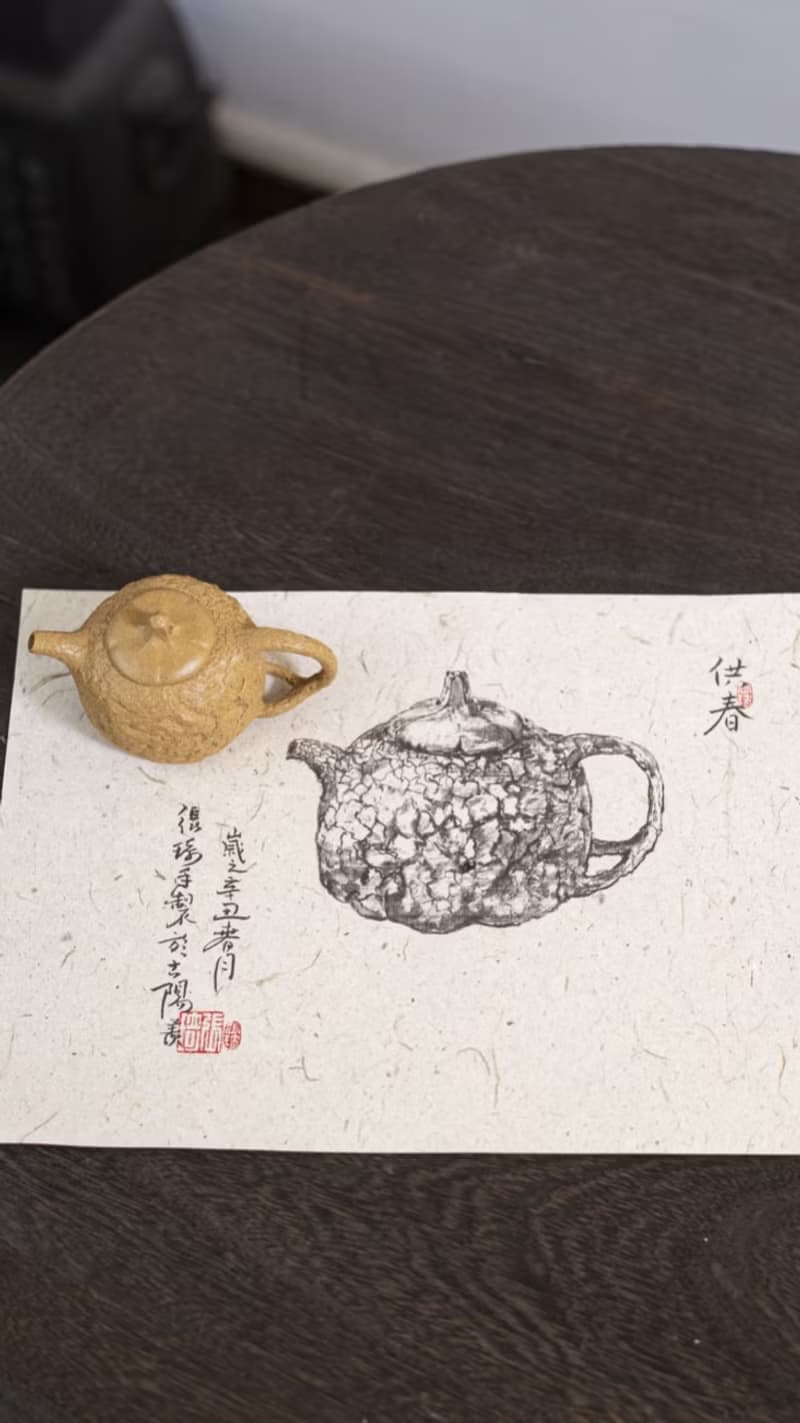 供春
歲之辛丑春月
張瑤手製於古陽羨